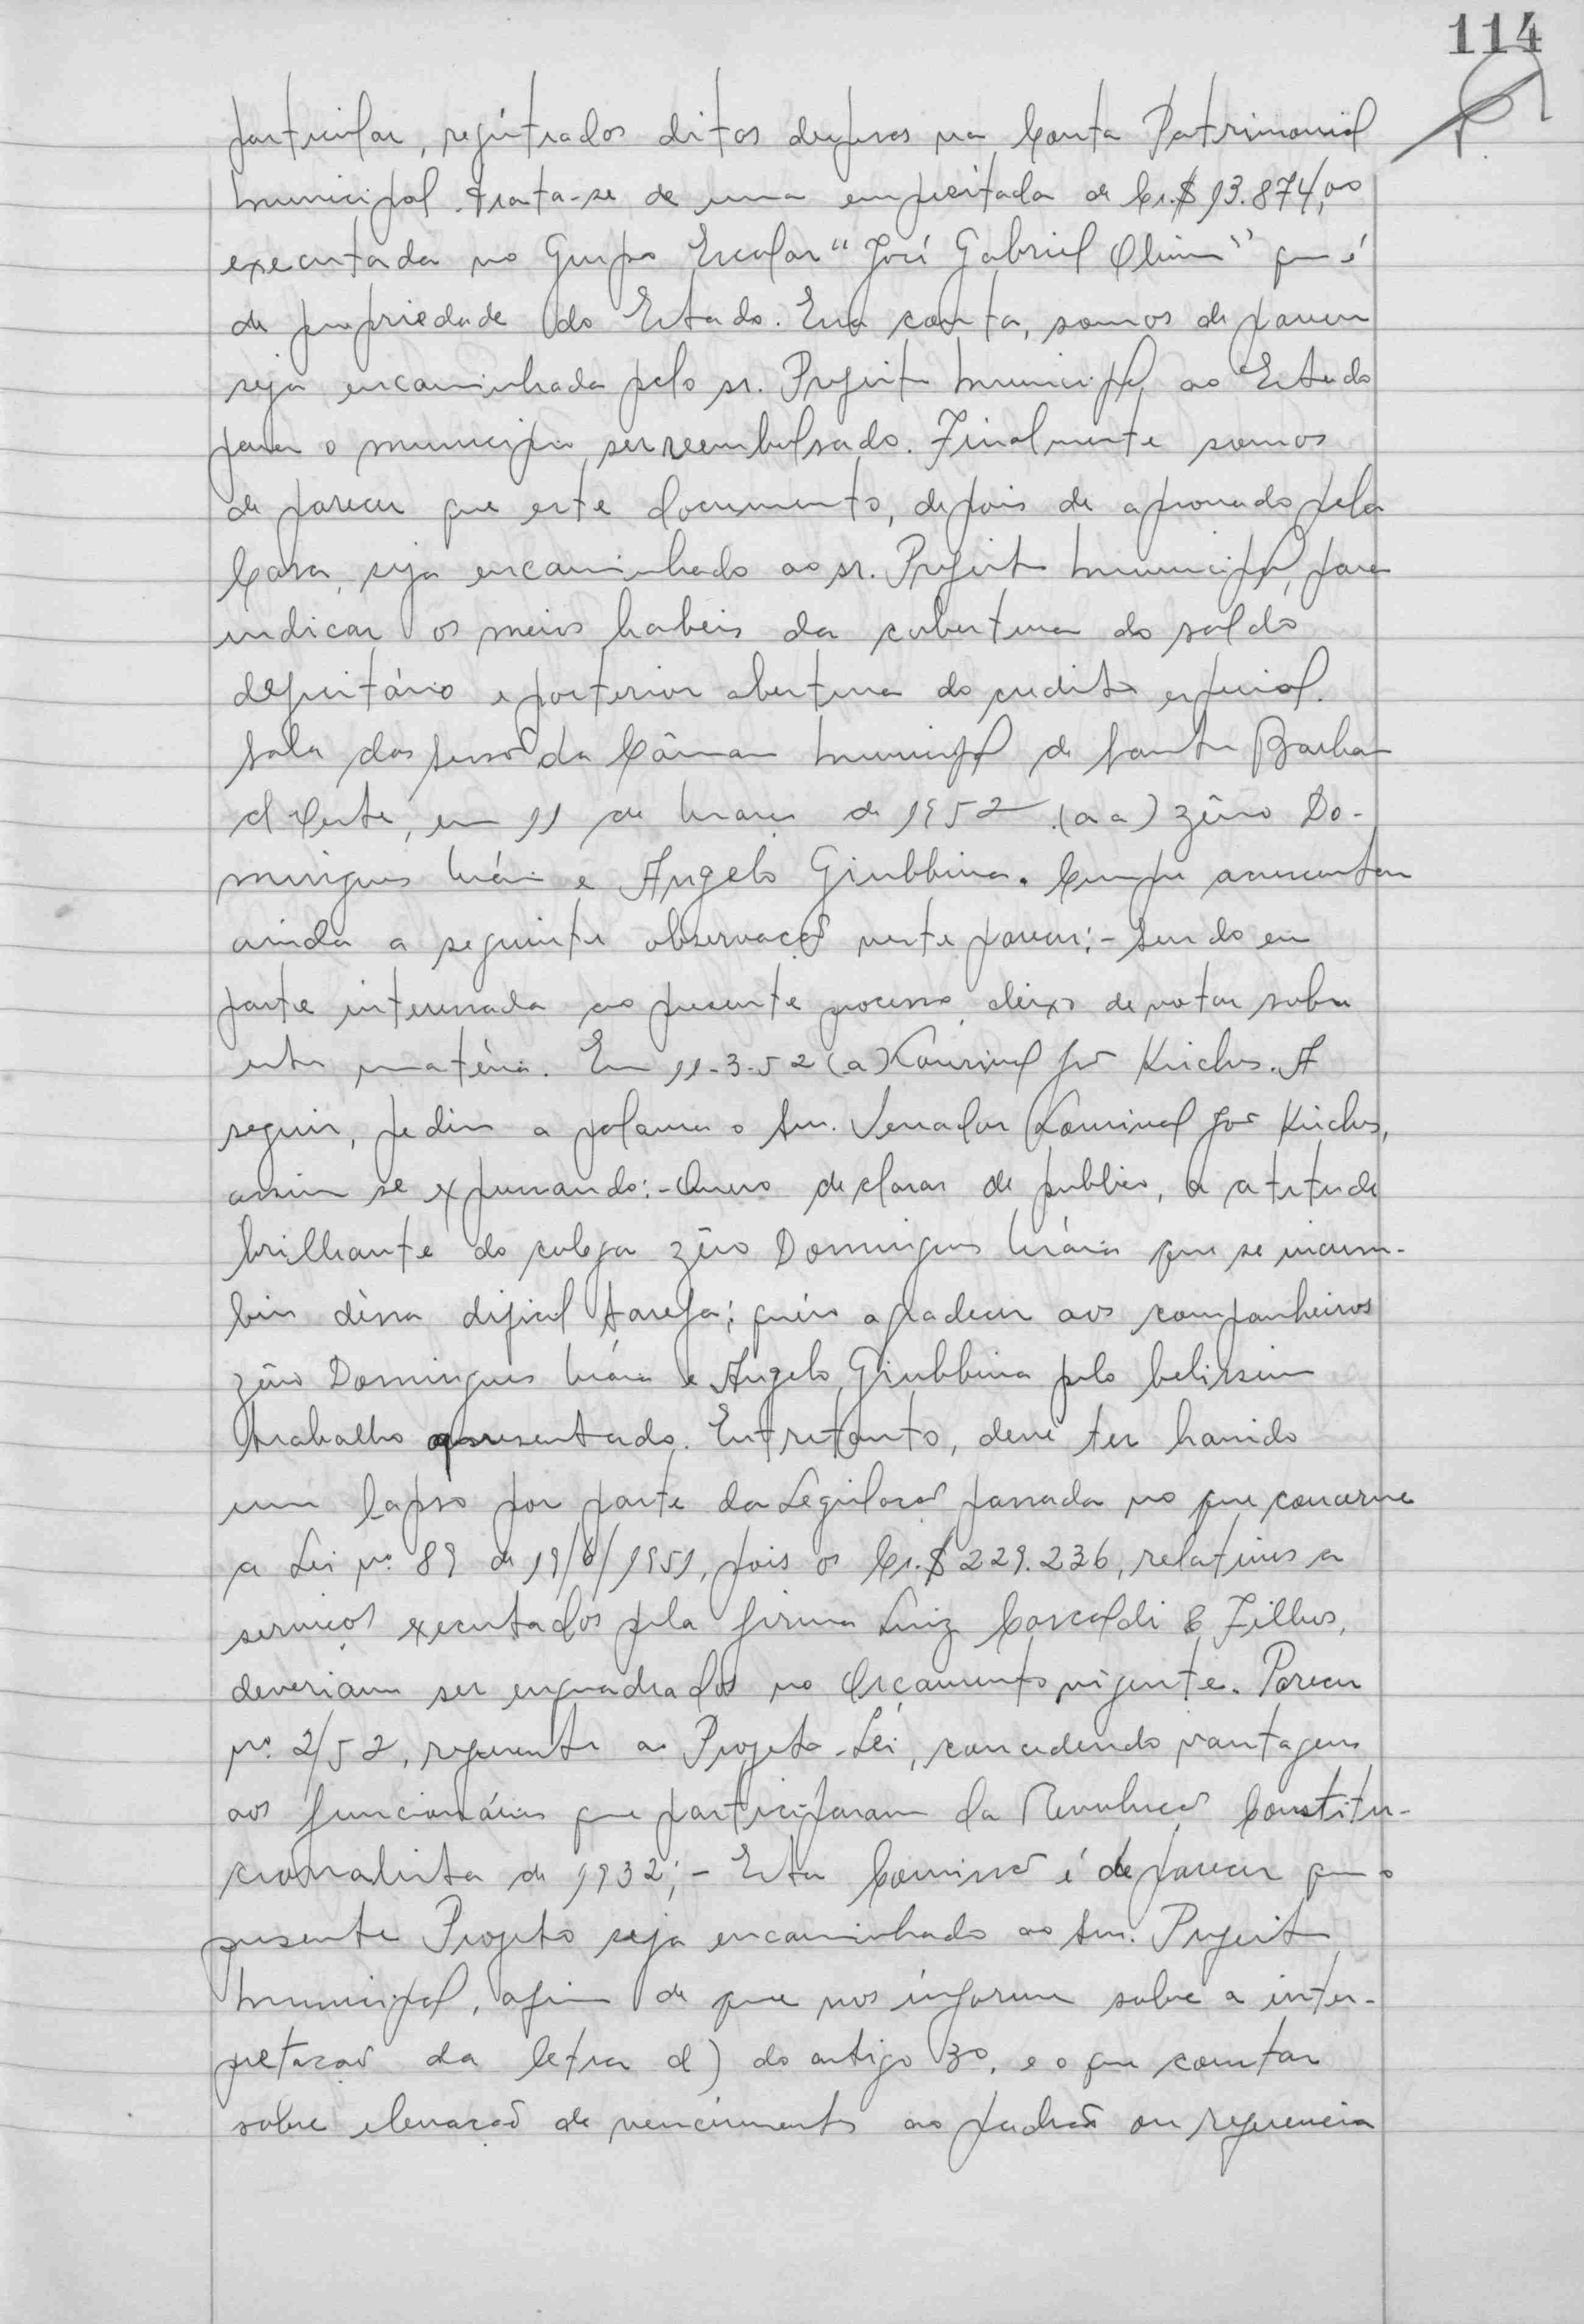 114
particular, registrados ditas despesas na Conta Patrimonial
Municipal. Trata-se de uma empreitada de Cr.$ 13.874,00
executada no Grupo Escolar "José Gabriel Oliveira" que é
de propriedade do Estado. Essa conta, somos de parecer
seja encaminhada pelo sr. Prefeito Municipal ao Estado
para o municipio ser reembolsado. Finalmente somos
de parecer que este documento, depois de aprovado pela
Casa, seja encaminhado ao sr. Prefeito Municipal, para
indicar os meios habeis da cobertura do saldo
deficitário e posterior abertura do credito especial.
Sala das Sessões da Câmara Municipal de Santa Barbara
d'Oeste, em 11 de Março de 1952. (a a) Zêno Do-
mingues Maia e Angelo Giubbina. Cumpre acrescentar
ainda a seguinte observação neste parecer:- Sendo eu
parte interessada no presente processo, deixo de votar sobre
esta matéria. Em 11-3-52 (a) Lourival José Kirches. A
seguir, pediu a palavra o Snr. Vereador Lourival José Kirches,
assim se expressando:- Quero declarar de publico, a atitude
brilhante do colega Zêno Domingues Maia que se incum-
biu dêssa dificil tarefa; quero agradecer aos companheiros
Zêno Domingues Maia e Angelo Giubbina pelo belissimo
trabalho apresentado. Entretanto, deve ter havido
um lapso por parte da Legislação passada no que concerne
a Lei nº 89 de 19/6/1951, pois os Cr.$ 229.236, relativos a
serviços executados pela firma Luiz Cascaldi & Filhos,
deveriam ser enquadrados no Orçamento vigente. Parecer
nº 2/52, referente ao Projeto-Lei, concedendo vantagens
aos funcionários que participaram da Revolução Constitu-
cionalista de 1932:- Esta Comissão é de parecer que o
presente Projeto seja encaminhado ao Snr. Prefeito
Municipal, afim de que nos informe sobre a inter-
pretação da letra d) do artigo 30, e o que constar
sobre elevação de vencimentos ao padrão ou referencia